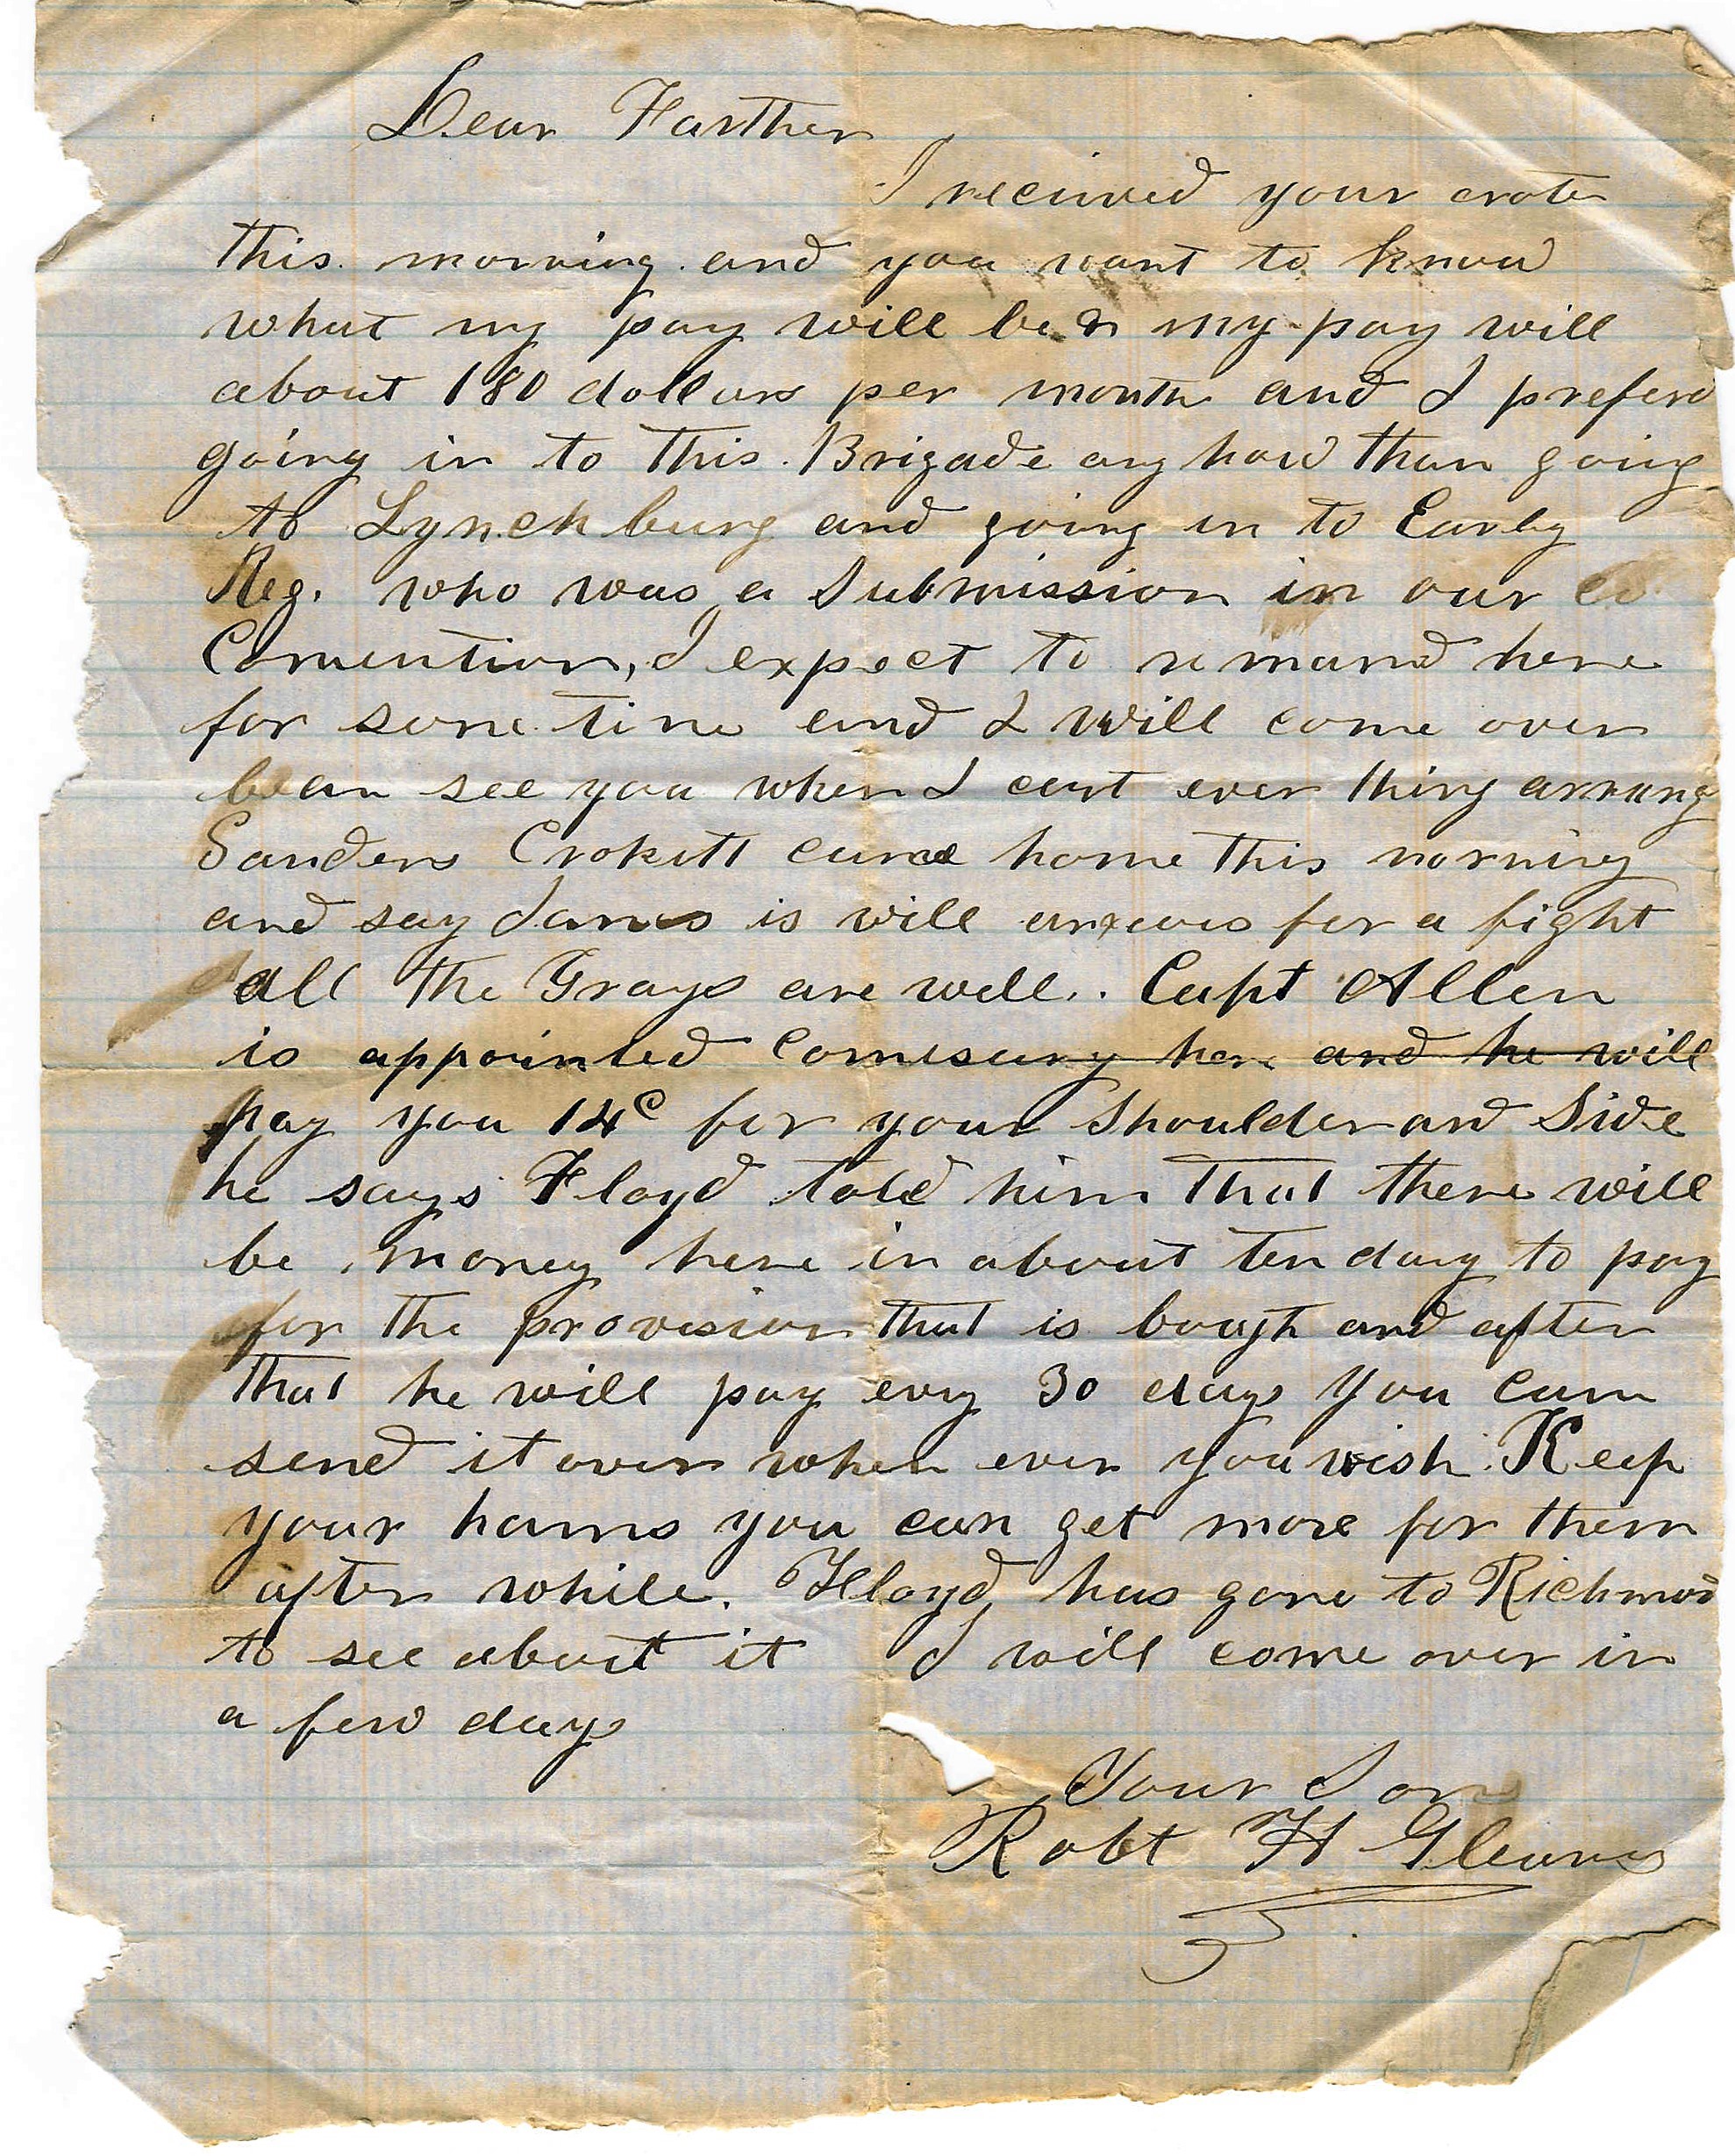 Dear Farther
I recived your
this morning and you want to know
what my pay will be my pay will
about 180 dollars per month and I preferd
going in to this Brigade any how than going
to Lynchburg and going in to Early
Reg. who was a Submission in our
Convention, I expect to remand here
for some time and I will come over
an see you when I ever thing arrang
Sanders Crokett came home this morning
and say James is will anxious for a fight
all the Grays are well. Capt Allen
is appointed Comisary here and he will
pay you 14c for your Shoulder and Side
he says Floyd told him that there will
be money here in about ten day to pay
for the provision that is bougth and after
that he will pay evry 30 days You can
send it over when ever you wish. Keep
your hams you can get more for them
after while. Floyd has gone to Richmod
to see about it I will come over in
a few days
Your Son
Robt H Gleaves